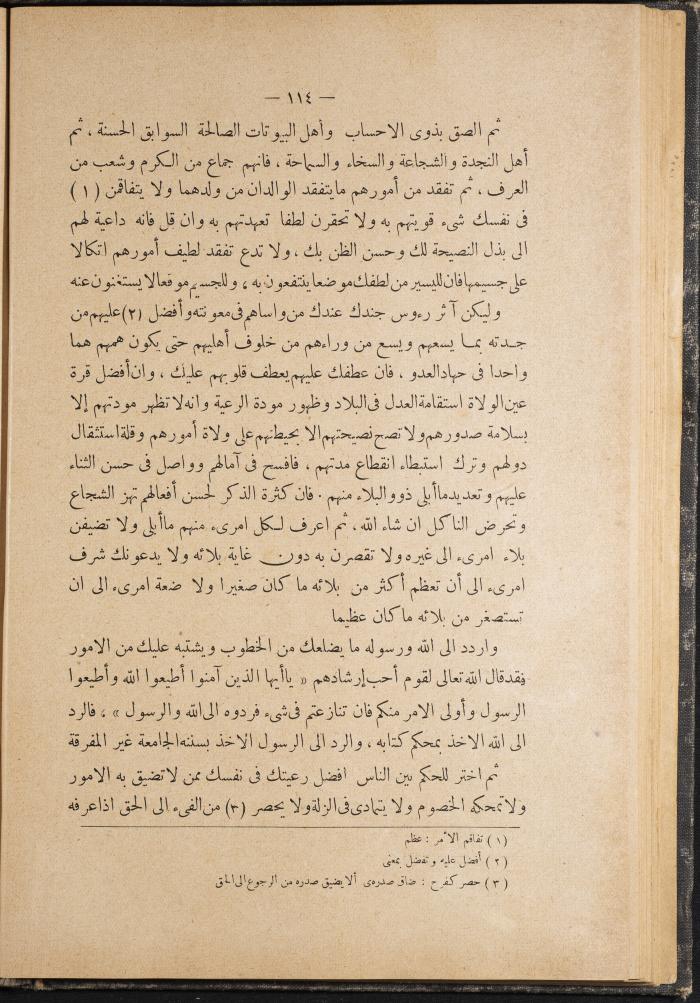 — ١١٤ —
ثم الصق بذوى الاحساب وأهل البيوتات الصالحة السوابق الحسنة ، ثم
أهل النجدة والشجاعة والسخاء والسماحة ، فانهم جماع من الكرم وشعب من
العرف ، ثم تفقد من أمورهم مايتفقد الوالدان من ولدهما ولا يتفاقمن ( ١ )
فى نفسك شىء قويتهم به ولا تحقرن لطفا تعهدتهم به وان قل فانه داعية لهم
الى بذل النصيحة لك وحسن الظن بك ، ولا تدع تفقد لطيف أمورهم اتكالا
على جسيمها فان لليسير من لطفك موضعا ينتفعون به ، وللجسيم موقعا لا يستغنون عنه
وليكن آثر رءوس جندك عندك من واساهم فى معونته وأفضل (٢) عليهم من
جدته بما يسعهم ويسع من وراءهم من خلوف أهليهم حتى يكون همهم هما
واحدا فى جهاد العدو ، فان عطفك عليهم يعطف قلوبهم عليك ، وان أفضل قرة
عين الولاة استقامة العدل فى البلاد وظهور مودة الرعية وانه لا تظهر مودتهم إلا
بسلامة صدورهم ولا تصح نصيحتهم الا بحيطتهم على ولاة أمورهم وقلة استثقال
دولهم وترك استبطاء انقطاع مدتهم ، فافسح فى آمالهم وواصل فى حسن الثناء
عليهم وتعديد ماأبلى ذوو البلاء منهم . فان كثرة الذكر لحسن أفعالهم تهز الشجاع
وتحرض الناكل ان شاء الله ، ثم اعرف لكل امرىء منهم ماأبلى ولا تضيفن
بلاء امرىء الى غيره ولا تقصرن به دون غاية بلائه ولا يدعونك شرف
امرىء الى أن تعظم أكثر من بلائه ما كان صغيرا ولا ضعة امرىء الى ان
تستصغر من بلائه ما كان عظيما
واردد الى الله ورسوله ما يضلعك من الخطوب ويشتبه عليك من الامور
فقد قال الله تعالى لقوم أحب إرشادهم « ياأيها الذين آمنوا أطيعوا الله وأطيعوا
الرسول وأولى الامر منكم فان تنازعتم فى شىء فردوه الى الله والرسول » ، فالرد
الى الله الاخذ بمحكم كتابه ، والرد الى الرسول الاخذ بسنته الجامعة غير المفرقة
ثم اختر للحكم بين الناس افضل رعيتك فى نفسك ممن لا تضيق به الامور
ولا تمحكه الخصوم ولا يتمادى فى الزلة ولا يحصر (٣) من الفىء الى الحق اذا عرفه
( ١ ) تفاقم الأمر : عظم
( ٢ ) أفضل عليه وتفضل بمعنى
( ٣ ) حصر كفرح : ضاق صدره ى ألا يضيق صدره من الرجوع الى الحق